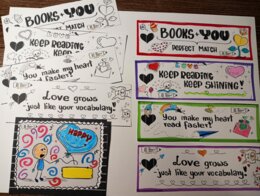 BOOKS + YOU
MATCH
Love
KEEP READING
KEEP
You make my heart
read faster!
Love grows
-just like your vocabulary!
HAPPY
BOOKS + YOU
PERFECT MATCH
Love
KEEP READING
KEEP SHINING!
You make my heart
read faster!
Love grows
-just like your vocabulary!